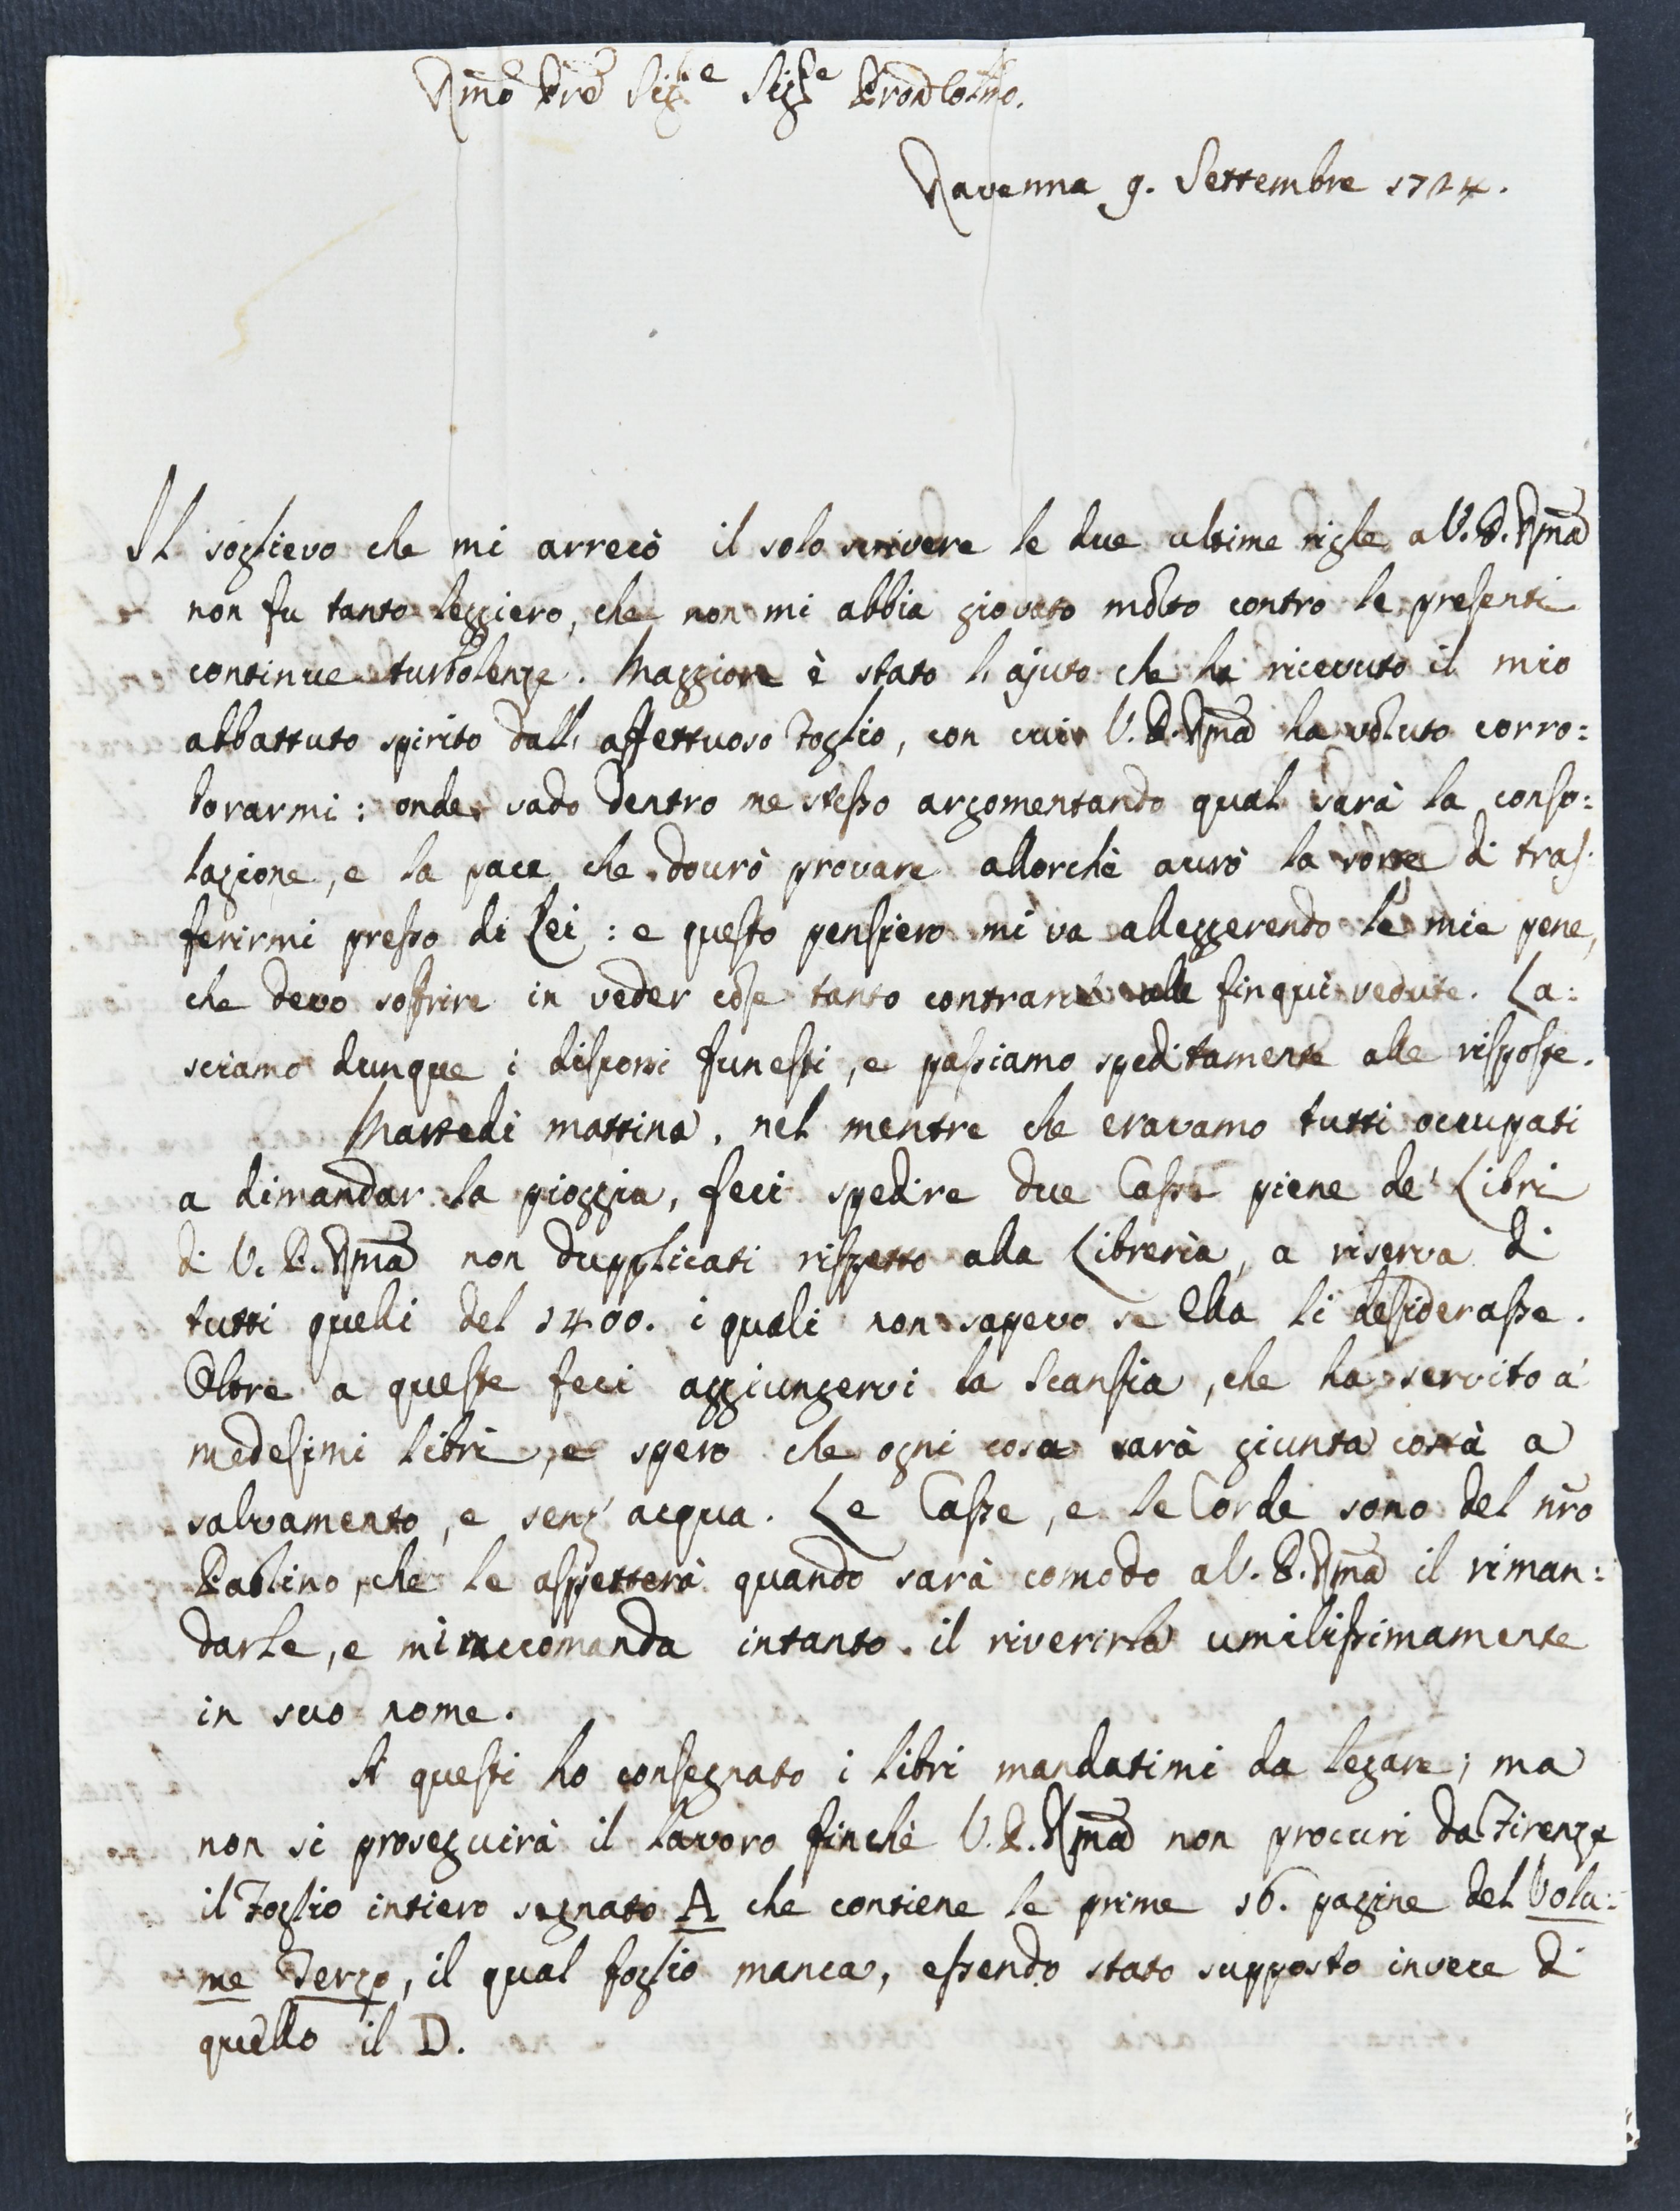 Rmo Pre Sige Sige Prone Colmo.
Ravenna 9. Settembre 1724.
Il soglievo che mi arrecò il solo scrivere le due ultime righe a V. P. Rma
non fu tanto leggiero, che non mi abbia giovato molto contro le presenti
continue turbolenze. Maggiore è stato l'ajuto che ha ricevuto il mio
abbattuto spirito dall'affettuoso Foglio, con cui V. P. Rma ha voluto corro:
borarmi: onde vado dentro me stesso argomentando qual sarà la conso:
lazione, e la pace che dovrò provare allorchè avrò la sorte di tras:
ferirmi presso di Lei: e questo pensiero mi va alleggerendo le mie pene,
che devo soffrire in veder cose tanto contrarie alle fin qui vedute. La:
sciamo dunque i discorsi funesti, e passiamo speditamente alle risposte.
Martedi mattina, nel mentre che eravamo tutti occupati
a dimandar la pioggia, feci spedire due Casse piene de' Libri
di V. P. Rma non dupplicati rispetto alla Libreria, a riserva di
tutti quelli del 1400. i quali non sapevo se Ella li desiderasse.
Oltre a queste feci aggiungervi la Scansia, che ha servito a'
medesimi libri, e spero che ogni cosa sarà giunta costà a
salvamento, e senz'acqua. Le Casse, e le Corde sono del nro
Paolino, che le aspetterà quando sarà comodo a V. P. Rma il riman:
darle, e mi raccomanda intanto il riverirla umilissimamente
in suo nome.
A questi ho consegnato i libri mandatimi da legare; ma
non si proseguirà il lavoro finchè V. P. Rma non procuri da Firenze
il Foglio intiero segnato A che contiene le prime 16. pagine del Volu:
me Terzo, il qual foglio manca, essendo stato supposto invece di
quello il D.